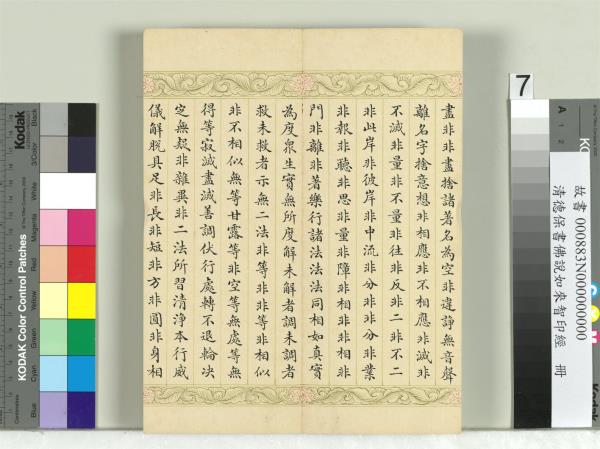 盡非非盡捨諸著名為空非違諍無音聲
離名字捨意想非相應非不相應非滅非
不滅非量非不量非往非反非二非不二
非此岸非彼岸非中流非分非非分非業
非報非聽非思非量非障非相非非相非
門非離非著樂行諸法法法同相如真實
為度衆生實無所度解未解者調未調者
救未救者示無二法非等非非等非相似
非不相似無等甘露等非空等無處等無
得等寂滅盡滅善調伏行處轉不退輪决
定無疑非雜異非二法所習清淨本行威
儀解脫具足非長非短非方非圓非身相
7
故書 000883N000000000
清德保書佛說如來智印經 冊
KODAK Color Control Patches
Kodak
Blue
Cyan
Green
Yellow
Red
Magenta
White
3/Color
Black
A 1 2